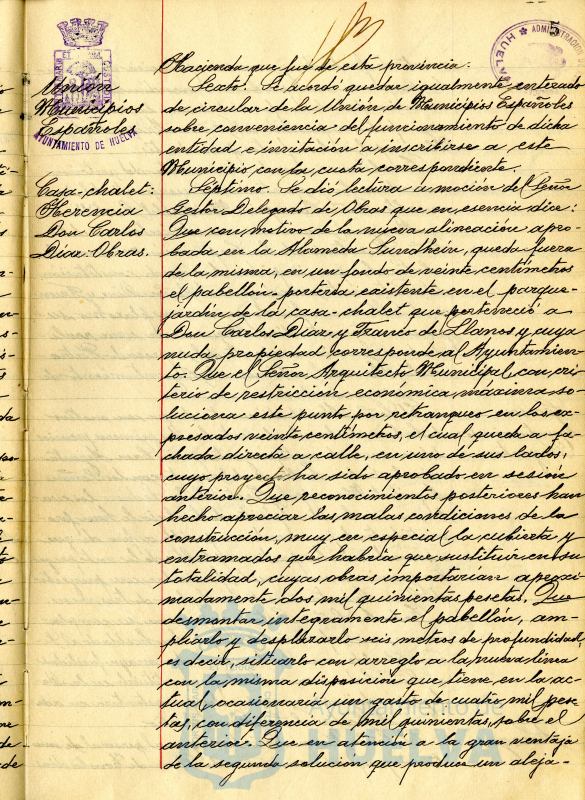 5
ADMINISTRACION
HUELVA
AYUNTAMIENTO DE HUELVA
Unión
Municipios
Españoles
Casa-chalet:
Herencia
Don Carlos
Díaz. Obras.
Hacienda que fué de esta provincia.
Sexto. Se acordó quedar igualmente enterado
de circular de la Unión de Municipios Españoles
sobre conveniencia del funcionamiento de dicha
entidad e invitación a inscribirse a este
Municipio con la cuota correspondiente.
Séptimo. Se dió lectura a moción del Señor
Gestor Delegado de Obras que en esencia dice:
Que con motivo de la nueva alineación apro-
bada en la Alameda Sundheim, queda fuera
de la misma, en un fondo de veinte centímetros
el pabellón-portería existente en el parque-
jardín de la casa-chalet que perteneció a
Don Carlos Díaz y Franco de Llanos y cuya
nuda propiedad corresponde al Ayuntamien-
to. Que el Señor Arquitecto Municipal, con cri-
terio de restricción económica máxima so-
luciona este punto por retranqueo en los ex-
presados veinte centímetros, el cual queda a fa-
chada directa a calle, en uno de sus lados;
cuyo proyecto ha sido aprobado en sesión
anterior. Que reconocimientos posteriores han
hecho apreciar las malas condiciones de la
construcción, muy en especial la cubierta y
entramados que habría que sustituir en su
totalidad, cuyas obras importarían aproxi-
madamente dos mil quinientas pesetas. Que
desmontar íntegramente el pabellón, am-
pliarlo y desplazarlo seis metros de profundidad,
es decir, situarlo con arreglo a la nueva línea
con la misma disposición que tiene en la ac-
tual, ocasionaría un gasto de cuatro mil pese-
tas, con diferencia de mil quinientas, sobre el
anterior. Que en atención a la gran ventaja
de la segunda solución que produce un aleja-
Ayuntamiento de
HUELVA